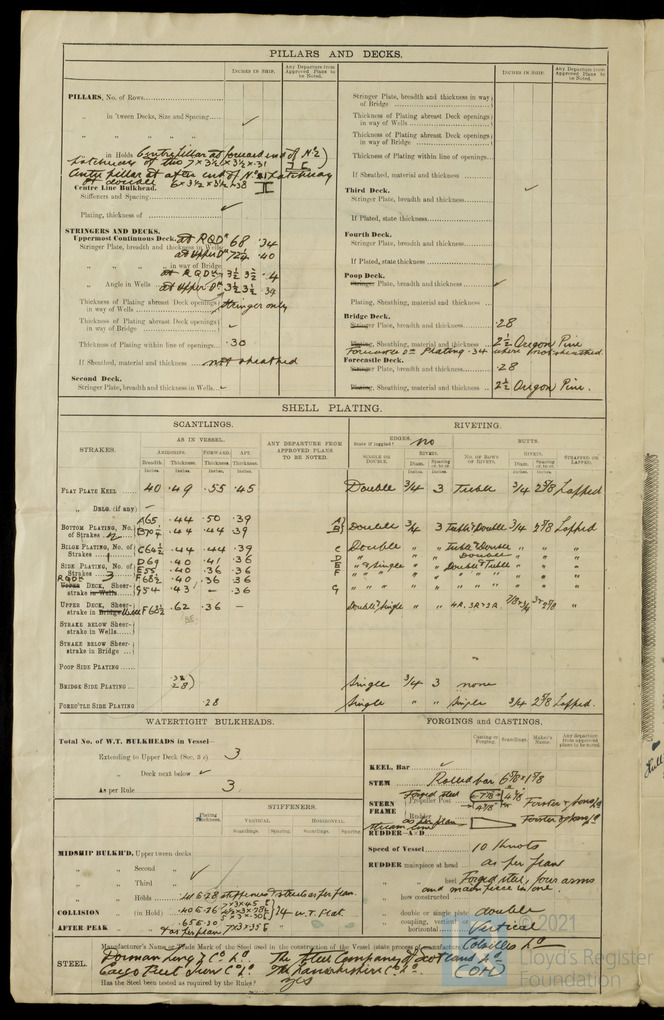 PILLARS AND DECKS.
INCHES IN SHIP.
Any Departure from Approved Plans to be Noted.
PILLARS, No. of Rows
„ in 'tween Decks, Size and Spacing ✓
„ „ „ „
„ in Holds Centre pillar at forward end of No 2
hatchway of two 7 × 3½ × 3½ × .31
Centre pillar at after end of No 1 hatchway
6 × 3½ × 3½ × .38
Centre Line Bulkhead.
Stiffeners and Spacing
Plating, thickness of ✓
STRINGERS AND DECKS.
Uppermost Continuous Deck. at RQDk 68 .34
Stringer Plate, breadth and thickness in Wells
at Upper Dk 72½ .40
„ „ „ in way of Bridge
at RQDk 3½ 3½ .4
„ Angle in Wells at Upper Dk 3½ 3½ .34
Thickness of Plating abreast Deck openings in way of Wells Stringer only
Thickness of Plating abreast Deck openings in way of Bridge ✓
Thickness of Plating within line of openings .30
If Sheathed, material and thickness not sheathed
Second Deck.
Stringer Plate, breadth and thickness in Wells ✓
INCHES IN SHIP.
Any Departure from Approved Plans to be Noted.
Stringer Plate, breadth and thickness in way of Bridge
Thickness of Plating abreast Deck openings in way of Wells
Thickness of Plating abreast Deck openings in way of Bridge
Thickness of Plating within line of openings
If Sheathed, material and thickness
Third Deck. ✓
Stringer Plate, breadth and thickness
If Plated, state thickness
Fourth Deck.
Stringer Plate, breadth and thickness
If Plated, state thickness
Poop Deck.
Stringer Plate, breadth and thickness ✓
Plating, Sheathing, material and thickness
Bridge Deck.
Stringer Plate, breadth and thickness .28
Plating, Sheathing, material and thickness 2½ Oregon Pine
Forecastle Dk Plating .34 where not sheathed.
Forecastle Deck.
Stringer Plate, breadth and thickness .28
Plating, Sheathing, material and thickness 2½ Oregon Pine.
SHELL PLATING.
SCANTLINGS.
RIVETING.
STRAKES.
AS IN VESSEL.
AMIDSHIPS. FORWARD. AFT.
Breadth Thickness. Thickness. Thickness.
Inches. Inches. Inches. Inches.
ANY DEPARTURE FROM APPROVED PLANS TO BE NOTED.
EDGES. State if joggled? No
BUTTS.
SINGLE OR DOUBLE.
RIVETS.
Diam. Spacing cr. to cr.
No. OF ROWS OF RIVETS.
RIVETS.
Diam. Spacing cr. to cr.
STRAPPED OR LAPPED.
FLAT PLATE KEEL 40 .49 .55 .45 Double 3/4 3 Treble 3/4 2 5/8 Lapped
„ DBLG. (if any) —
BOTTOM PLATING, No. of Strakes 2
A 65 .44 .50 .39
B 70½ .44 .44 .39 A B Double 3/4 3 Treble & Double 3/4 2 5/8 Lapped
BILGE PLATING, No. of Strakes 1 C 64½ .44 .44 .39 C Double „ „ Treble & Double „ „ „
SIDE PLATING, No. of Strakes 3
D 69 .40 .41 .36 D „ „ „ Double „ „ „
E 55 .40 .36 .36 E „ & single „ „ Double & Treble „ „ „
F 68½ .40 .36 .36 F „ „ „ „ „ „ „ „
RQDk Upper Deck, Sheerstrake in Wells G 54 .43 — .36 G „ „ „ „ „ „ „ „
UPPER DECK, Sheerstrake in Bridge Well F 68½ .62 .36 — Double & Single „ „ 4R. 3R & 2R. 7/8 & 3/4 3 & 2 5/8 „
STRAKE BELOW Sheerstrake in Wells
STRAKE BELOW Sheerstrake in Bridge
POOP SIDE PLATING
BRIDGE SIDE PLATING .32 .28 Single 3/4 3 none
FORE'C'TLE SIDE PLATING .28 Single „ „ Single 3/4 2 5/8 Lapped.
WATERTIGHT BULKHEADS.
Total No. of W.T. BULKHEADS in Vessel—
Extending to Upper Deck (Sec. 3 c) 3
„ Deck next below ✓
As per Rule 3
Plating Thickness.
STIFFENERS.
VERTICAL. HORIZONTAL.
Scantlings. Spacing. Scantlings. Spacing.
MIDSHIP BULKH'D, Upper tween decks
„ „ Second „ ✓
„ „ Third „
„ „ Holds .41 & .28 stiffeners & struts as per plan.
COLLISION „ (in Hold) .40 & .26 24 W.T. Flat
AFTER PEAK „ „ .65 & .30 as per plan 7×3×.35
FORGINGS and CASTINGS.
Casting or Forging. Scantlings. Maker's Name. Any departure from approved plans to be noted.
KEEL, Bar ✓
STEM Rolled bar 6 7/8 × 1 7/8
STERN FRAME
Propeller Post Forged steel 6 7/8 4 7/8
Rudder „ as per plan
RUDDER—A ÷ D
Speed of Vessel 10 Knots
RUDDER mainpiece at head as per plan
„ „ heel Forged steel, four arms
and main piece in one
„ how constructed
„ double or single plate double
„ coupling, vertical or horizontal Vertical
STEEL. Manufacturer's Name or Trade Mark of the Steel used in the construction of the Vessel (state process of manufacture) Colvilles Ld
Dorman Long & Co Ld The Steel Company of Scotland Ld
Cargo Fleet Iron Co Ld The Lanarkshire Co Ld
Has the Steel been tested as required by the Rules? Yes
© 2021
Lloyd's Register
Foundation